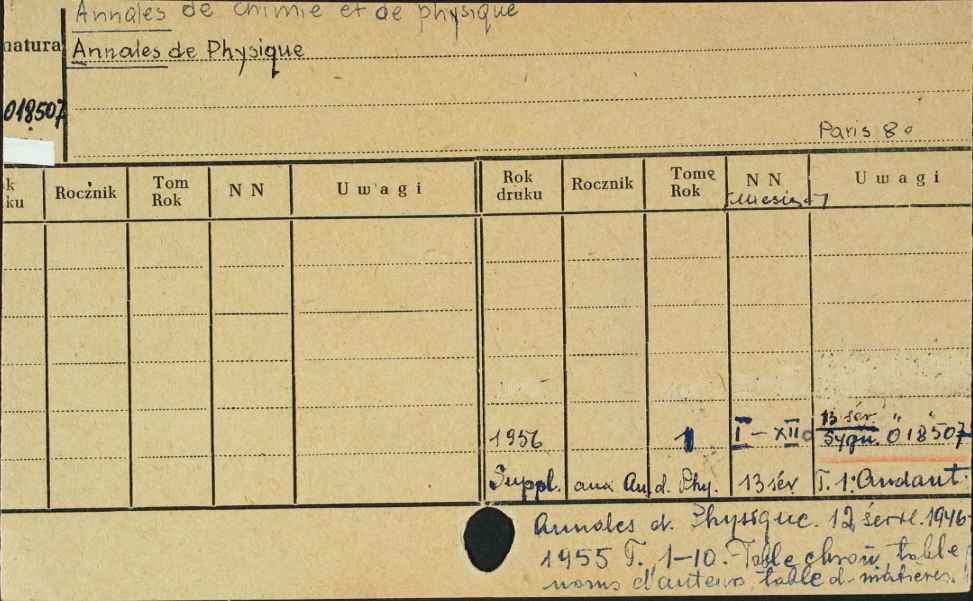 Annales de chimie et de physique
natura
Annales de Physique
018507
Paris 8o
k
ku
Rocznik
Tom
Rok
N N
Uwagi
Rok
druku
Rocznik
Tomę
Rok
N N
Uwagi
1956
1
I – XII
13 sér.
Sygn. 018507
Suppl. aux An. d. Phy.
13 sér
T. 1:
Annales d. Physique. 12 série. 1946-
1955 T. 1–10. Table chron, table
noms d'auteurs, table d. matières.